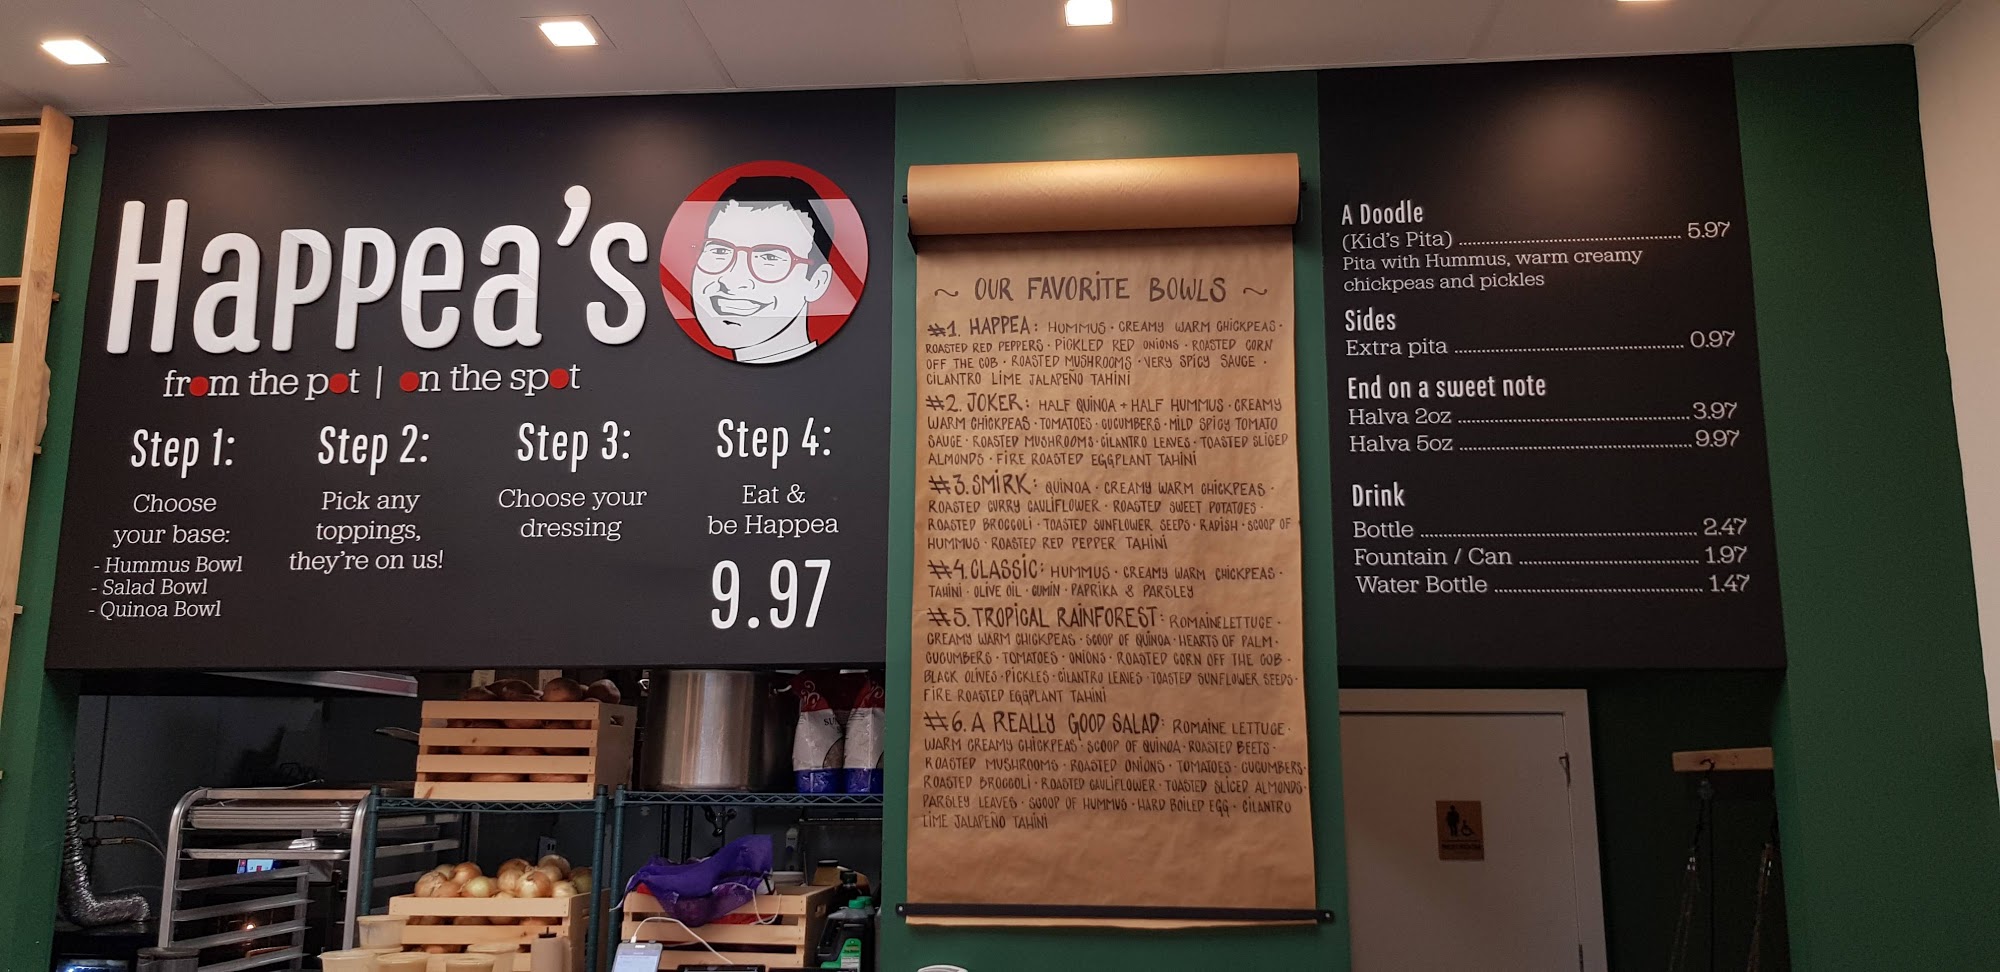 Happea's
from the pot | on the spot
Step 1:
Choose
your base:
- Hummus Bowl
- Salad Bowl
- Quinoa Bowl
Step 2:
Pick any
toppings,
they're on us!
Step 3:
Choose your
dressing
Step 4:
Eat &
be Happea
9.97
~ OUR FAVORITE BOWLS ~
#1. HAPPEA: HUMMUS · CREAMY WARM CHICKPEAS ·
ROASTED RED PEPPERS · PICKLED RED ONIONS · ROASTED CORN
OFF THE COB · ROASTED MUSHROOMS · VERY SPICY SAUCE ·
CILANTRO LIME JALAPEÑO TAHINI
#2. JOKER: HALF QUINOA + HALF HUMMUS · CREAMY
WARM CHICKPEAS · TOMATOES · CUCUMBERS · MILD SPICY TOMATO
SAUCE · ROASTED MUSHROOMS · CILANTRO LEAVES · TOASTED SLICED
ALMONDS · FIRE ROASTED EGGPLANT TAHINI
#3. SMIRK: QUINOA · CREAMY WARM CHICKPEAS ·
ROASTED CURRY CAULIFLOWER · ROASTED SWEET POTATOES ·
ROASTED BROCCOLI · TOASTED SUNFLOWER SEEDS · RADISH · SCOOP OF
HUMMUS · ROASTED RED PEPPER TAHINI
#4. CLASSIC: HUMMUS · CREAMY WARM CHICKPEAS ·
TAHINI · OLIVE OIL · CUMIN · PAPRIKA & PARSLEY
#5. TROPICAL RAINFOREST: ROMAINE LETTUCE ·
CREAMY WARM CHICKPEAS · SCOOP OF QUINOA · HEARTS OF PALM ·
CUCUMBERS · TOMATOES · ONIONS · ROASTED CORN OFF THE COB ·
BLACK OLIVES · PICKLES · CILANTRO LEAVES · TOASTED SUNFLOWER SEEDS ·
FIRE ROASTED EGGPLANT TAHINI
#6. A REALLY GOOD SALAD: ROMAINE LETTUCE ·
WARM CREAMY CHICKPEAS · SCOOP OF QUINOA · ROASTED BEETS ·
ROASTED MUSHROOMS · ROASTED ONIONS · TOMATOES · CUCUMBERS ·
ROASTED BROCCOLI · ROASTED CAULIFLOWER · TOASTED SLICED ALMONDS ·
PARSLEY LEAVES · SCOOP OF HUMMUS · HARD BOILED EGG · CILANTRO
LIME JALAPEÑO TAHINI
A Doodle
(Kid's Pita) 5.97
Pita with Hummus, warm creamy
chickpeas and pickles
Sides
Extra pita 0.97
End on a sweet note
Halva 2oz 3.97
Halva 5oz 9.97
Drink
Bottle 2.47
Fountain / Can 1.97
Water Bottle 1.47